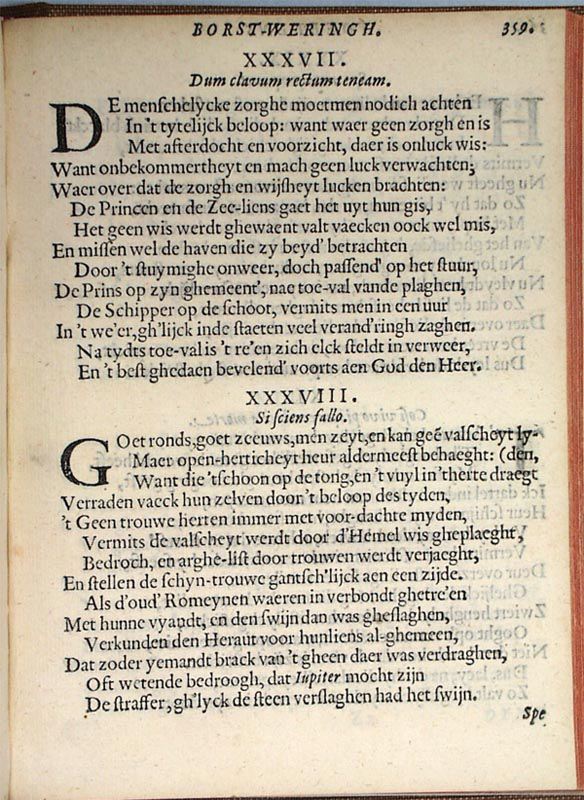 BORST-WERINGH. 359.
XXXVII.
Dum clavum rectum teneam.
DE menschelycke zorghe moetmen nodich achten
In 't tytelijck beloop: want waer geen zorgh en is
Met afterdocht en voorzicht, daer is onluck wis:
Want onbekommertheyt en mach geen luck verwachten;
Waer over dat de zorgh en wijsheyt lucken brachten:
De Princen en de Zee-liens gaet het uyt hun gis,
Het geen wis werdt ghewaent valt vaecken oock wel mis,
En missen wel de haven die zy beyd' betrachten
Door 't stuymighe onweer, doch passend' op het stuur,
De Prins op zyn ghemeent', nae toe-val vande plaghen,
De Schipper op de schoot, vermits men in een uur
In 't we'er, gh'lijck inde staeten veel verand'ringh zaghen.
Na tydts toe-val is 't re'en zich elck steldt in verweer,
En 't best ghedaen bevelend' voorts aen God den Heer.
XXXVIII.
Si sciens fallo.
GOet ronds, goet zeeuws, men zeyt, en kan geē valscheyt ly-
Maer open-herticheyt heur aldermeest behaeght: (den,
Want die 'tschoon op de tong, en 't vuyl in 'therte draegt
Verraden vaeck hun zelven door 't beloop des tyden,
't Geen trouwe herten immer met voor-dachte myden,
Vermits de valscheyt werdt door d'Hemel wis gheplaeght,
Bedroch, en arghe-list door trouwen werdt verjaeght,
En stellen de schyn-trouwe gantsch'lijck aen een zijde.
Als d'oud' Romeynen waeren in verbondt ghetre'en
Met hunne vyandt, en den swijn dan was gheslaghen,
Verkunden den Heraut voor hunliens al-ghemeen,
Dat zoder yemandt brack van 't gheen daer was verdraghen,
Oft wetende bedroogh, dat Iupiter mocht zijn
De straffer, gh'lyck de steen verslaghen had het swijn.
Spe